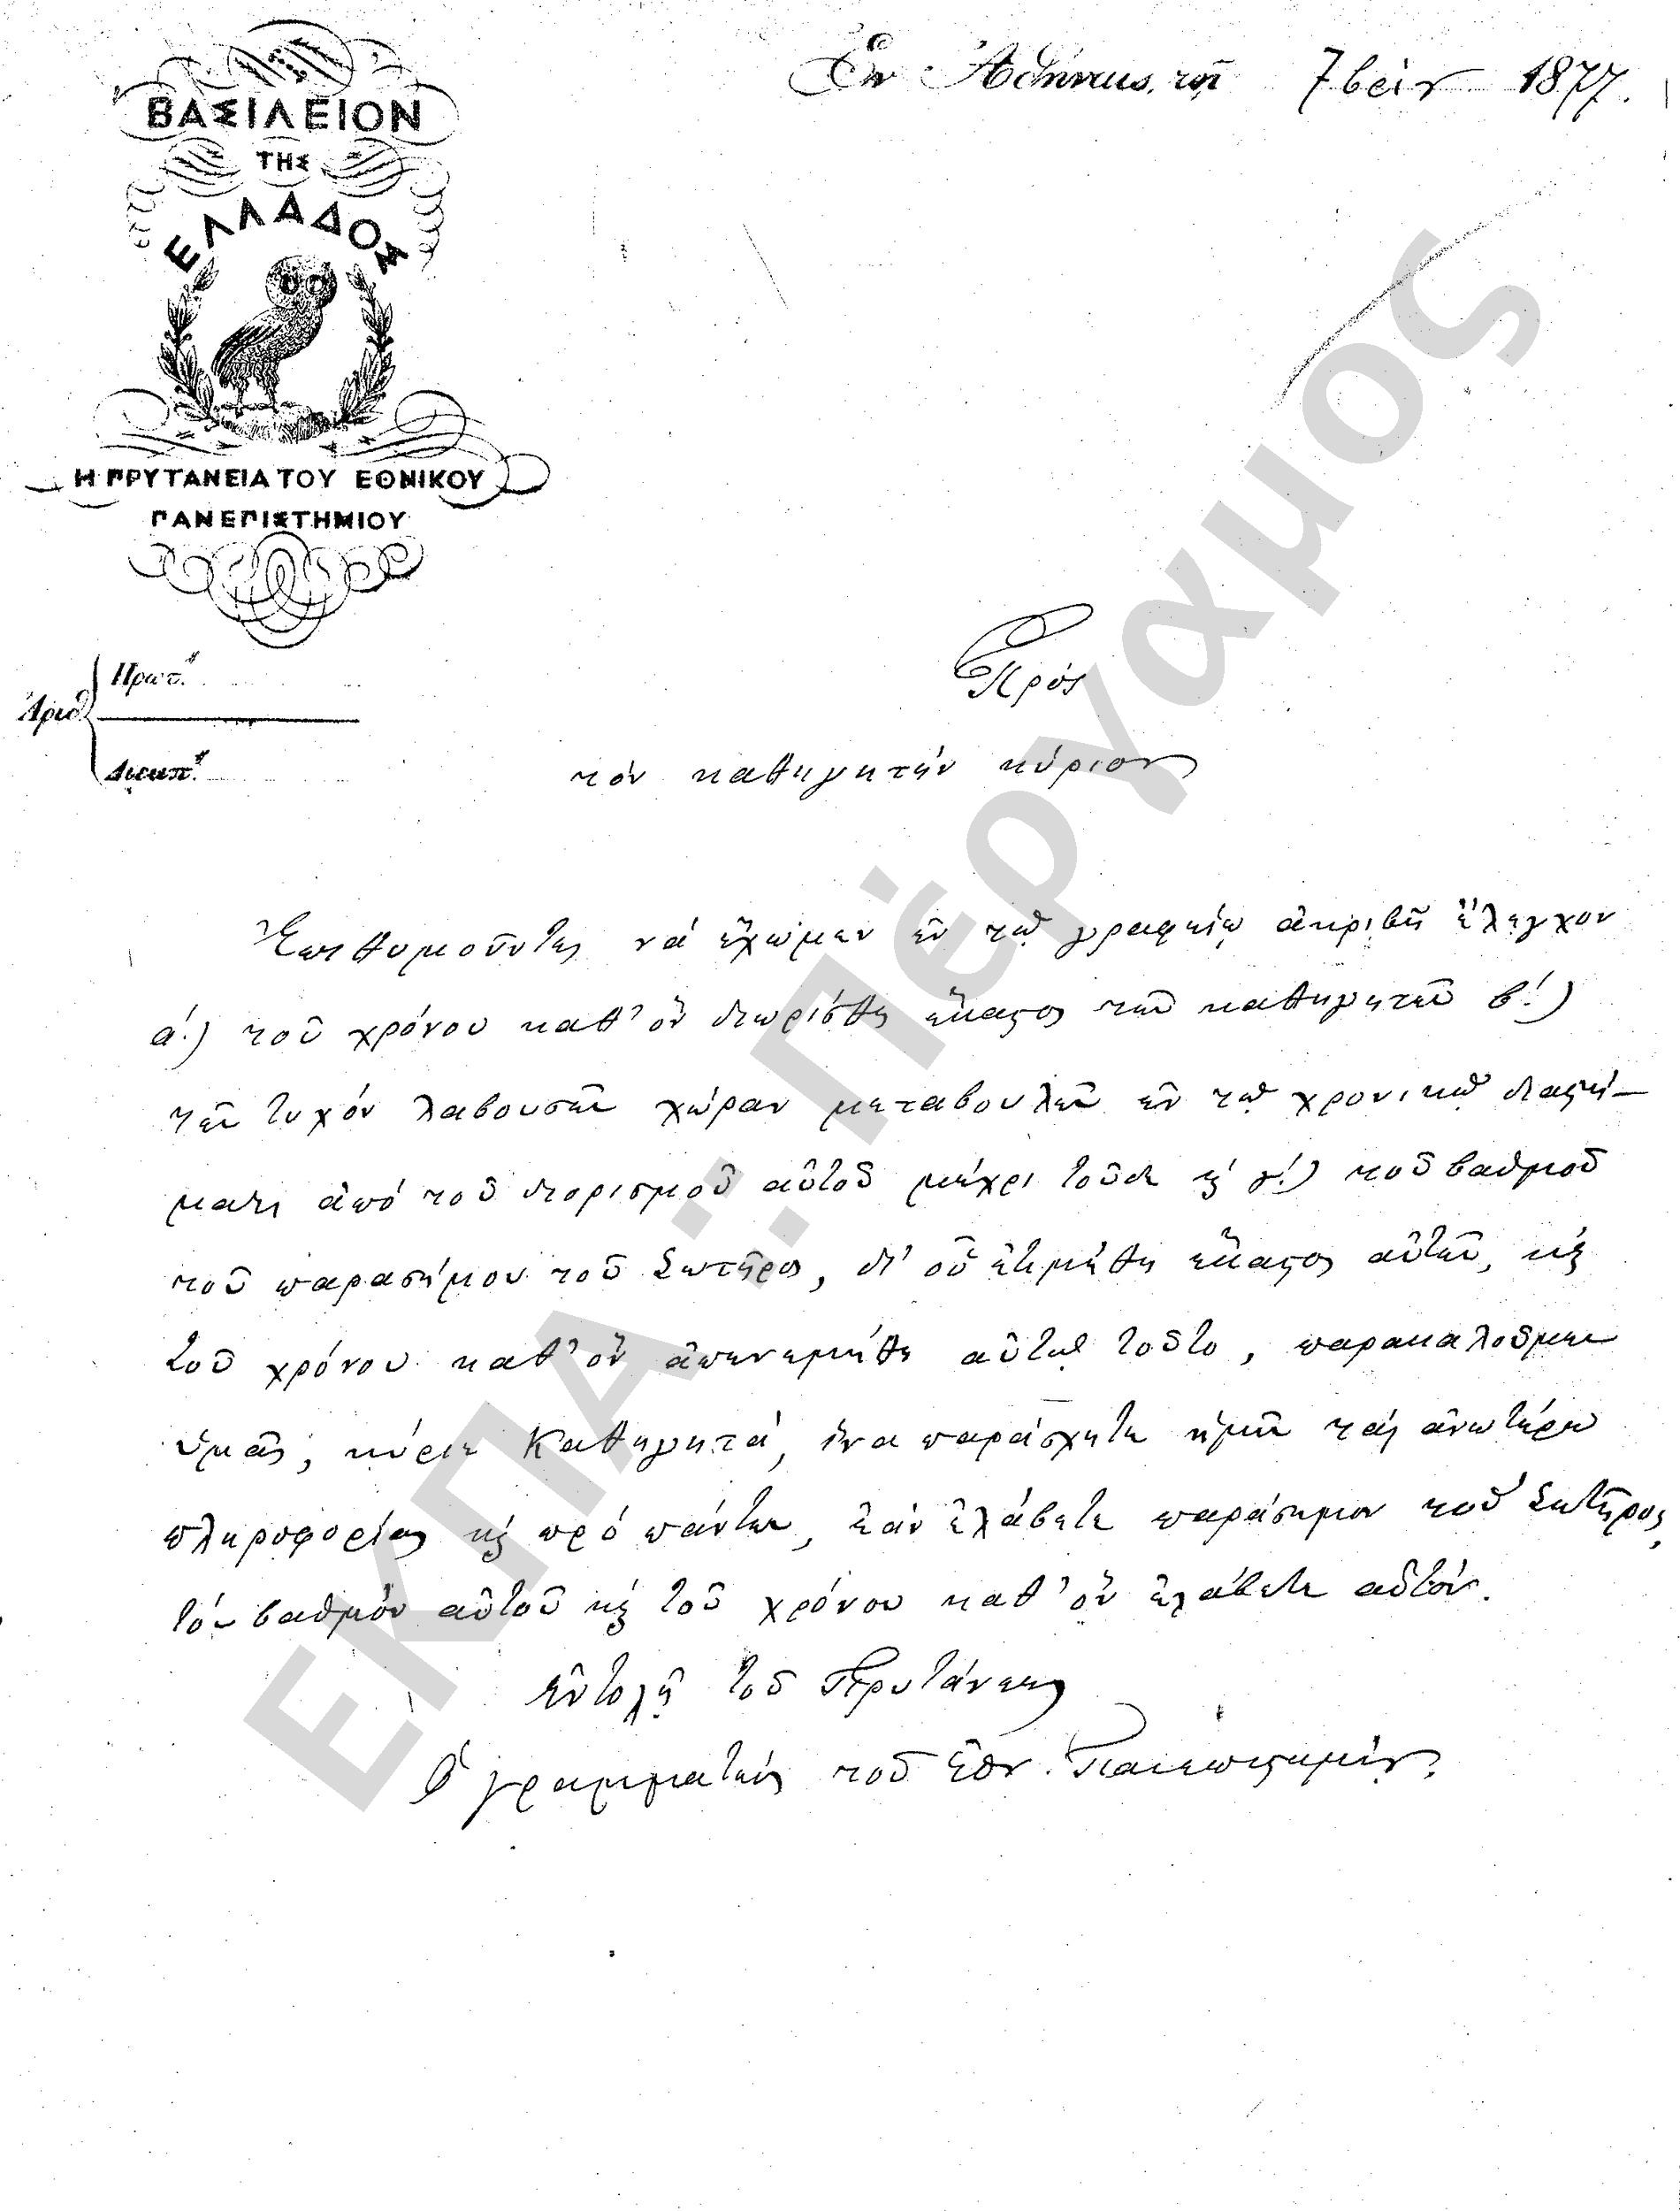 Ἐν Ἀθήναις, τῇ 7βρίου 1877.
ΒΑΣΙΛΕΙΟΝ
ΤΗΣ
ΕΛΛΑΔΟΣ
Η ΠΡΥΤΑΝΕΙΑ ΤΟΥ ΕΘΝΙΚΟΥ
ΠΑΝΕΠΙΣΤΗΜΙΟΥ
Ἀριθ.
Πρωτ.
Διεκπ.
Πρὸς
τὸν καθηγητὴν κύριον
Ἐπιθυμοῦντες νὰ ἔχωμεν ἐν τῷ γραφείῳ ἀκριβῆ ἔλεγχον
ά.) τοῦ χρόνου καθ' ὃν διωρίσθη ἕκαστος τῶν καθηγητῶν β΄.)
τῶν τυχὸν λαβουσῶν χώραν μεταβουλῶν ἐν τῷ χρονικῷ διαστή-
ματι ἀπὸ τοῦ διορισμοῦ αὐτοῦ μέχρι τοῦδε ϗ γ΄.) τοῦ βαθμοῦ
τοῦ παρασήμου τοῦ Σωτῆρος, δι' οὗ ἐτιμήθη ἕκαστος αὐτῶν, ϗ
τοῦ χρόνου καθ' ὃν ἀπενεμήθη αὐτῷ τοῦτο, παρακαλοῦμεν
ὑμᾶς, κύριε Καθηγητά, ἵνα παράσχητε ἡμῖν τὰς ἀνωτέρω
πληροφορίας ϗ πρὸ πάντων, ἐὰν ἐλάβετε παράσημον τοῦ Σωτῆρος,
τὸν βαθμὸν αὐτοῦ ϗ τοῦ χρόνου καθ' ὃν ἐλάβετε αὐτόν.
Ἐντολῇ τοῦ Πρυτάνεως
Ὁ γραμματεὺς τοῦ Ἐθν. Πανεπιστημίου.
ΕΚΠΑ :: Πέργαμος